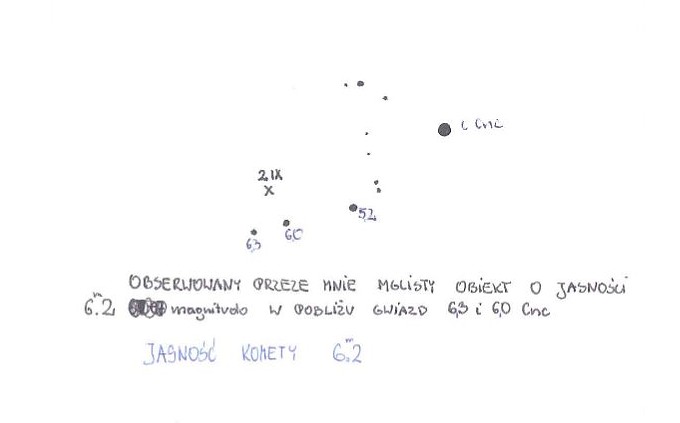 ι Cnc
2 IX
X
5,2
6,0
6,3
OBSERWOWANY PRZEZE MNIE MGLISTY OBIEKT O JASNOŚCI
6.ᵐ2 magnitudo W POBLIŻU GWIAZD 6,3 i 6,0 Cnc
JASNOŚĆ KOMETY 6.ᵐ2